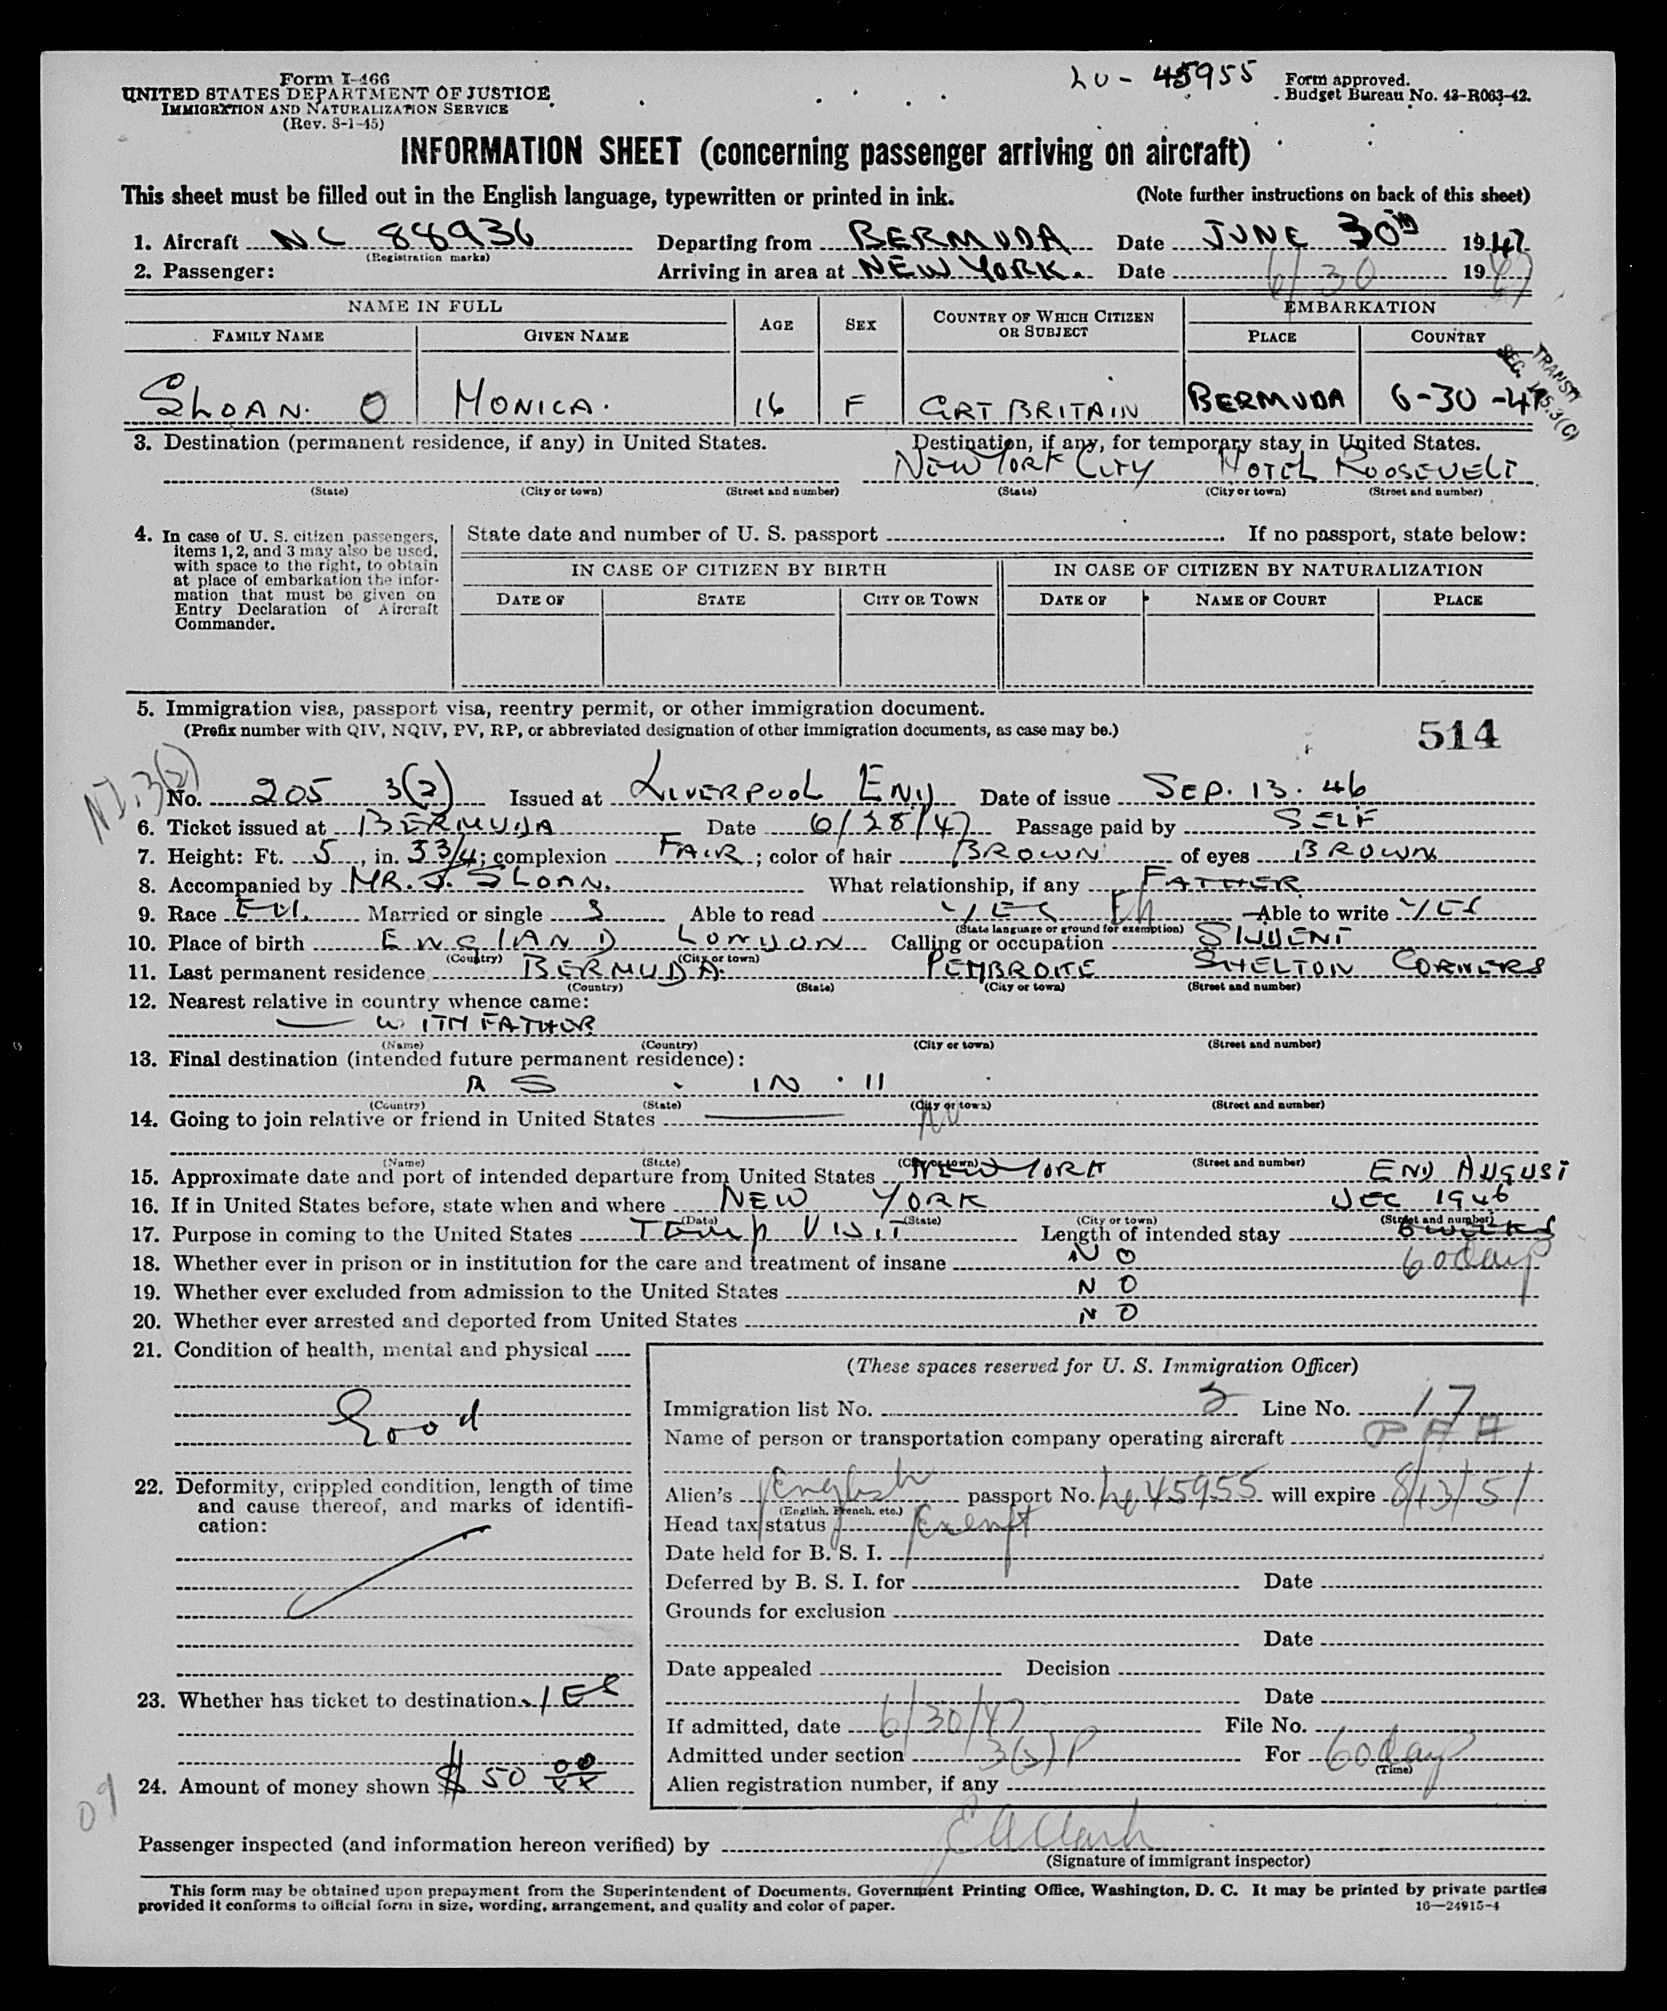 Form I-466
UNITED STATES DEPARTMENT OF JUSTICE
IMMIGRATION AND NATURALIZATION SERVICE
(Rev. 8-1-45)
LU - 45955
Form approved.
Budget Bureau No. 43-R063-42.
INFORMATION SHEET (concerning passenger arriving on aircraft)
This sheet must be filled out in the English language, typewritten or printed in ink. (Note further instructions on back of this sheet)
1. Aircraft NC 88936 Departing from BERMUDA Date JUNE 30th 1947
(Registration marks)
2. Passenger: Arriving in area at NEW YORK. Date 6/30 1947
NAME IN FULL AGE SEX COUNTRY OF WHICH CITIZEN OR SUBJECT EMBARKATION
FAMILY NAME GIVEN NAME PLACE COUNTRY
TRANSIT
SEC. 145.3(C)
SLOAN. O MONICA. 16 F GRT BRITAIN BERMUDA 6-30-47
3. Destination (permanent residence, if any) in United States. Destination, if any, for temporary stay in United States.
NEW YORK CITY HOTEL ROOSEVELT
(State) (City or town) (Street and number) (State) (City or town) (Street and number)
4. In case of U. S. citizen passengers, items 1, 2, and 3 may also be used, with space to the right, to obtain at place of embarkation the information that must be given on Entry Declaration of Aircraft Commander.
State date and number of U. S. passport If no passport, state below:
IN CASE OF CITIZEN BY BIRTH IN CASE OF CITIZEN BY NATURALIZATION
DATE OF STATE CITY OR TOWN DATE OF NAME OF COURT PLACE
5. Immigration visa, passport visa, reentry permit, or other immigration document.
(Prefix number with QIV, NQIV, PV, RP, or abbreviated designation of other immigration documents, as case may be.)
514
3(2)
No. 205 3(2) Issued at LIVERPOOL ENG Date of issue SEP. 13. 46
6. Ticket issued at BERMUDA Date 6/28/47 Passage paid by SELF
7. Height: Ft. 5, in. 5 3/4; complexion FAIR; color of hair BROWN of eyes BROWN
8. Accompanied by MR. J. SLOAN. What relationship, if any FATHER
9. Race Married or single S Able to read YES Able to write YES
(State language or ground for exemption)
10. Place of birth ENGLAND LONDON Calling or occupation STUDENT
(Country) (City or town)
11. Last permanent residence BERMUDA. PEMBROKE SHELTON CORNERS
(Country) (State) (City or town) (Street and number)
12. Nearest relative in country whence came:
WITH FATHER
(Name) (Country) (City or town) (Street and number)
13. Final destination (intended future permanent residence):
AS IN 11
(Country) (State) (City or town) (Street and number)
14. Going to join relative or friend in United States No
(Name) (State) (City or town) (Street and number)
15. Approximate date and port of intended departure from United States NEW YORK END AUGUST
16. If in United States before, state when and where NEW YORK DEC 1946
(Date) (State) (City or town) (Street and number)
17. Purpose in coming to the United States Temp VISIT Length of intended stay 8 WEEKS
60 days
18. Whether ever in prison or in institution for the care and treatment of insane NO
19. Whether ever excluded from admission to the United States NO
20. Whether ever arrested and deported from United States NO
21. Condition of health, mental and physical
Good
22. Deformity, crippled condition, length of time and cause thereof, and marks of identification:
23. Whether has ticket to destination YES
24. Amount of money shown $ 50 00/xx
09
(These spaces reserved for U. S. Immigration Officer)
Immigration list No. 2 Line No. 17
Name of person or transportation company operating aircraft PAA
Alien's English passport No. 45955 will expire 8/13/51
(English, French, etc.)
Head tax status Exempt
Date held for B. S. I.
Deferred by B. S. I. for Date
Grounds for exclusion
Date
Date appealed Decision
Date
If admitted, date 6/30/47 File No.
Admitted under section 3(2)P For 60 days
(Time)
Alien registration number, if any
Passenger inspected (and information hereon verified) by E A Clark
(Signature of immigrant inspector)
This form may be obtained upon prepayment from the Superintendent of Documents, Government Printing Office, Washington, D. C. It may be printed by private parties
provided it conforms to official form in size, wording, arrangement, and quality and color of paper. 16—24915-4